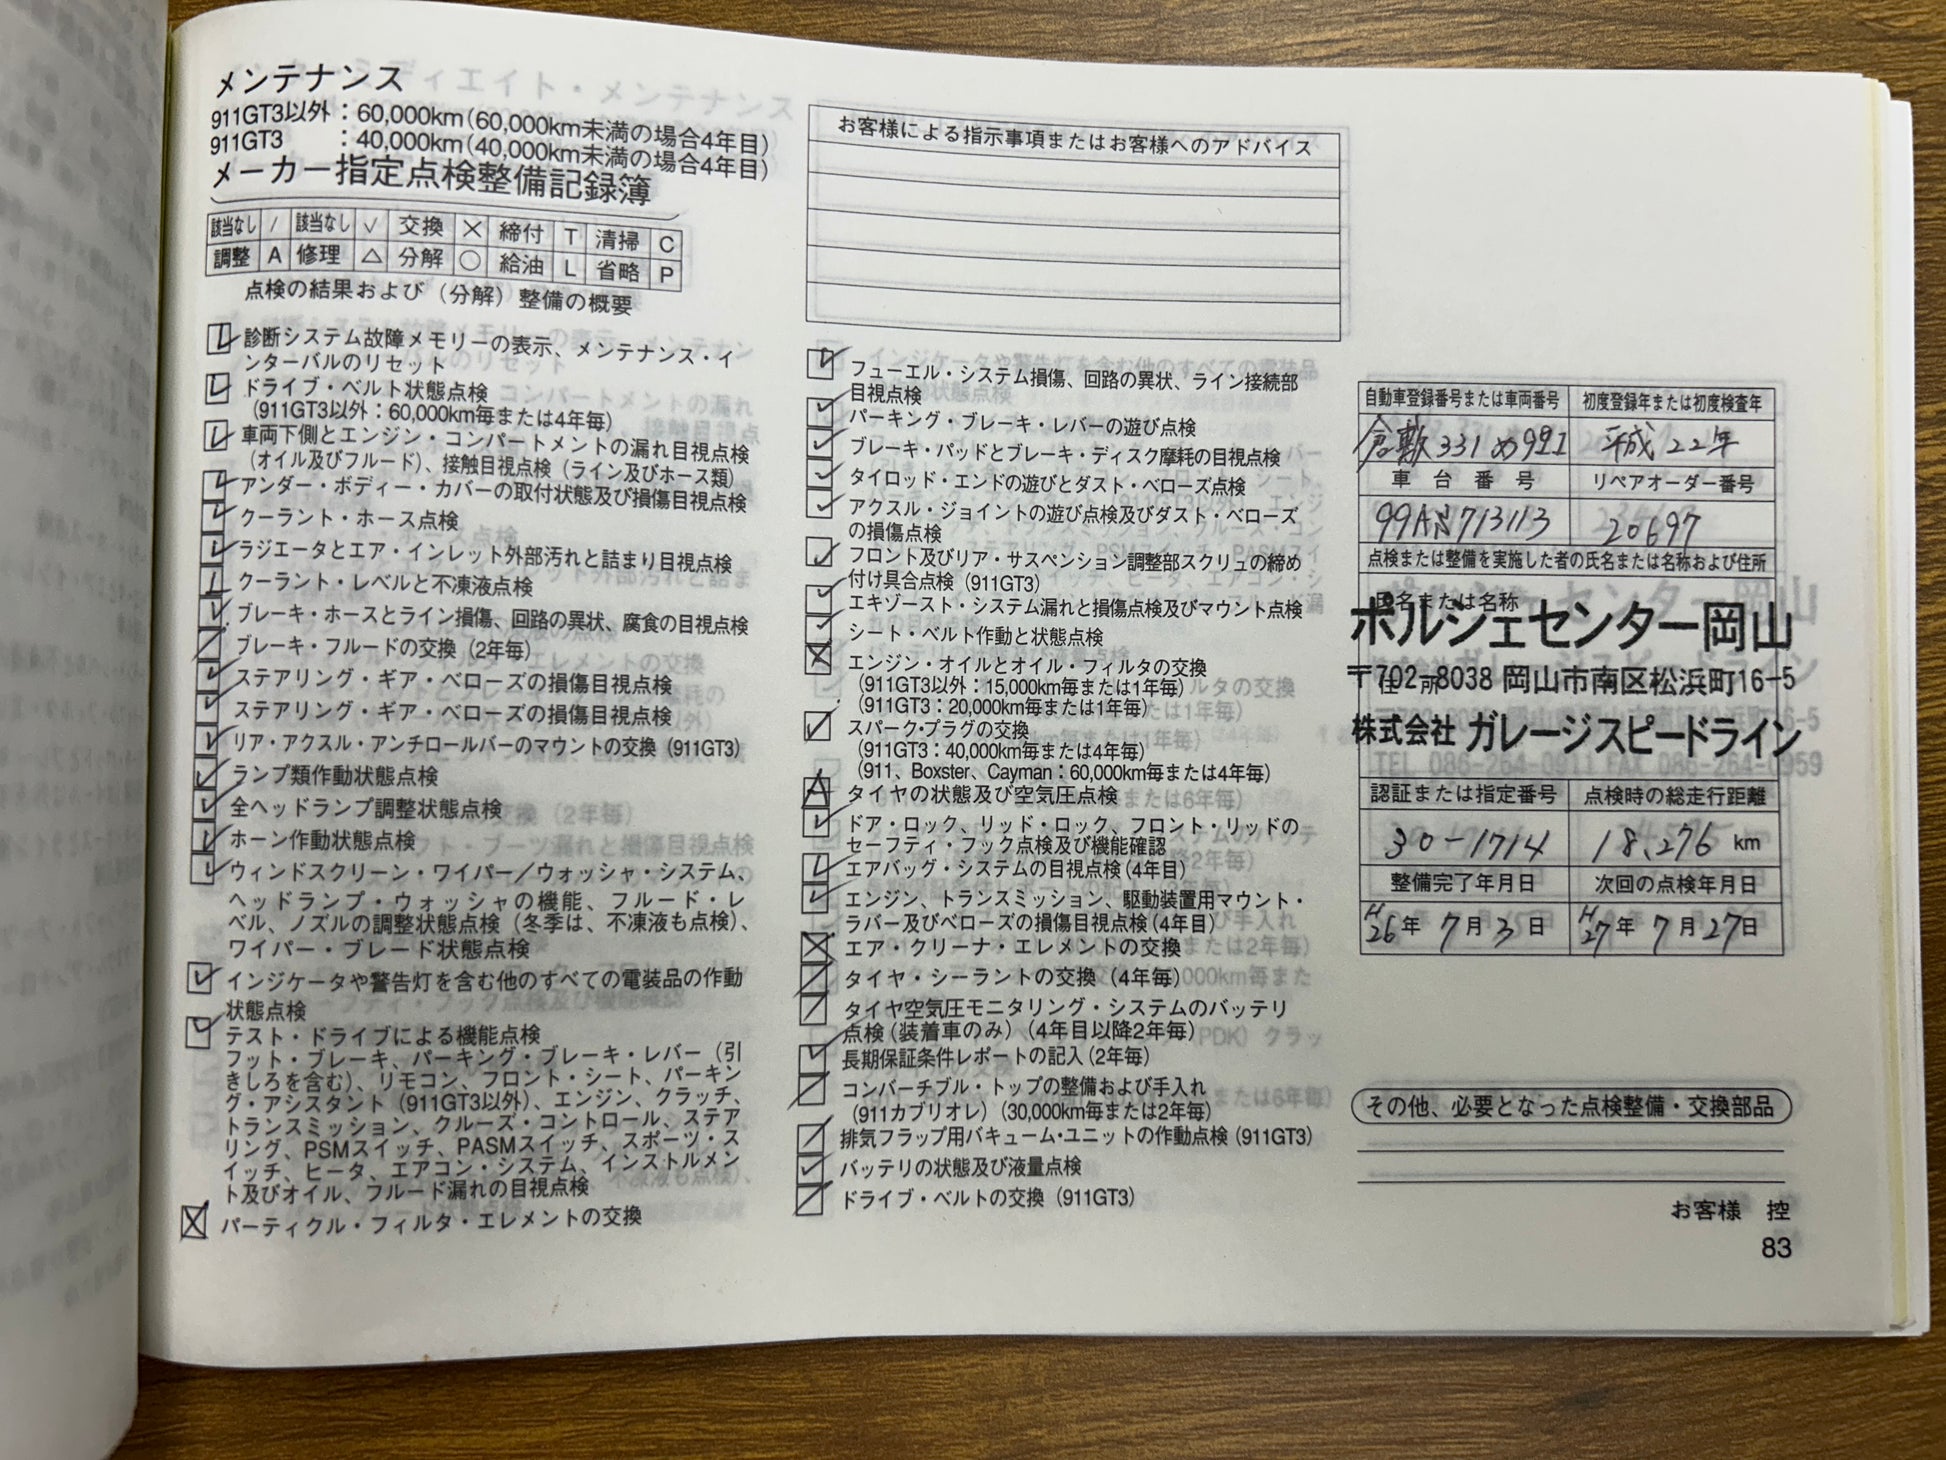 メンテナンス
911GT3以外：60,000km（60,000km未満の場合4年目）
911GT3　　：40,000km（40,000km未満の場合4年目）
メーカー指定点検整備記録簿
該当なし / 該当なし √ 交換 × 締付 T 清掃 C
調整 A 修理 △ 分解 ○ 給油 L 省略 P
点検の結果および（分解）整備の概要
診断システム故障メモリーの表示、メンテナンス・イ
ンターバルのリセット
ドライブ・ベルト状態点検
（911GT3以外：60,000km毎または4年毎）
車両下側とエンジン・コンパートメントの漏れ目視点検
（オイル及びフルード）、接触目視点検（ライン及びホース類）
アンダー・ボディー・カバーの取付状態及び損傷目視点検
クーラント・ホース点検
ラジエータとエア・インレット外部汚れと詰まり目視点検
クーラント・レベルと不凍液点検
ブレーキ・ホースとライン損傷、回路の異状、腐食の目視点検
ブレーキ・フルードの交換（2年毎）
ステアリング・ギア・ベローズの損傷目視点検
ステアリング・ギア・ベローズの損傷目視点検
リア・アクスル・アンチロールバーのマウントの交換（911GT3）
ランプ類作動状態点検
全ヘッドランプ調整状態点検
ホーン作動状態点検
ウィンドスクリーン・ワイパー／ウォッシャ・システム、
ヘッドランプ・ウォッシャの機能、フルード・レ
ベル、ノズルの調整状態点検（冬季は、不凍液も点検）、
ワイパー・ブレード状態点検
インジケータや警告灯を含む他のすべての電装品の作動
状態点検
テスト・ドライブによる機能点検
フット・ブレーキ、パーキング・ブレーキ・レバー（引
きしろを含む）、リモコン、フロント・シート、パーキン
グ・アシスタント（911GT3以外）、エンジン、クラッチ、
トランスミッション、クルーズ・コントロール、ステア
リング、PSMスイッチ、PASMスイッチ、スポーツ・ス
イッチ、ヒータ、エアコン・システム、インストルメン
ト及びオイル、フルード漏れの目視点検
パーティクル・フィルタ・エレメントの交換
お客様による指示事項またはお客様へのアドバイス
フューエル・システム損傷、回路の異状、ライン接続部
目視点検
パーキング・ブレーキ・レバーの遊び点検
ブレーキ・パッドとブレーキ・ディスク摩耗の目視点検
タイロッド・エンドの遊びとダスト・ベローズ点検
アクスル・ジョイントの遊び点検及びダスト・ベローズ
の損傷点検
フロント及びリア・サスペンション調整部スクリュの締め
付け具合点検（911GT3）
エキゾースト・システム漏れと損傷点検及びマウント点検
シート・ベルト作動と状態点検
エンジン・オイルとオイル・フィルタの交換
（911GT3以外：15,000km毎または1年毎）
（911GT3：20,000km毎または1年毎）
スパーク・プラグの交換
（911GT3：40,000km毎または4年毎）
（911、Boxster、Cayman：60,000km毎または4年毎）
タイヤの状態及び空気圧点検
ドア・ロック、リッド・ロック、フロント・リッドの
セーフティ・フック点検及び機能確認
エアバッグ・システムの目視点検（4年目）
エンジン、トランスミッション、駆動装置用マウント・
ラバー及びベローズの損傷目視点検（4年目）
エア・クリーナ・エレメントの交換
タイヤ・シーラントの交換（4年毎）
タイヤ空気圧モニタリング・システムのバッテリ
点検（装着車のみ）（4年目以降2年毎）
長期保証条件レポートの記入（2年毎）
コンバーチブル・トップの整備および手入れ
（911カブリオレ）（30,000km毎または2年毎）
排気フラップ用バキューム・ユニットの作動点検（911GT3）
バッテリの状態及び液量点検
ドライブ・ベルトの交換（911GT3）
自動車登録番号または車両番号 初度登録年または初度検査年
倉敷 331 め 991 平成 22年
車台番号 リペアオーダー番号
713113 20697
点検または整備を実施した者の氏名または名称および住所
氏名または名称
ポルシェセンター岡山
住所
〒702-8038 岡山市南区松浜町16-5
株式会社 ガレージスピードライン
TEL 086-264-0911 FAX 086-264-0959
認証または指定番号 点検時の総走行距離
30-1714 18,276 km
整備完了年月日 次回の点検年月日
H26年 7月 3日 H27年 7月 27日
その他、必要となった点検整備・交換部品
お客様 控
83